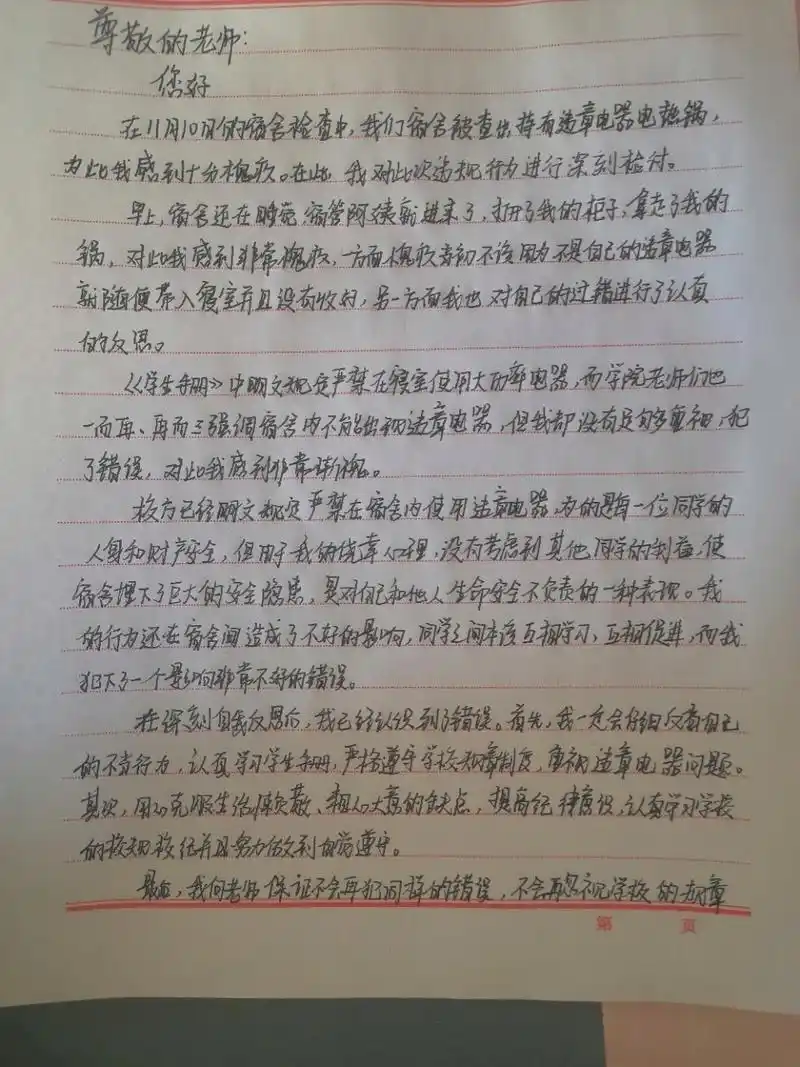 尊敬的老师:
您好
在11月10日的宿舍检查中,我们宿舍被查出持有违章电器电热锅,
为此我感到十分愧疚。在此 我对此次违规行为进行深刻检讨。
早上,宿舍还在睡觉,宿管阿姨就进来了,打开了我的柜子,拿走了我的
锅,对此我感到非常愧疚,一方面愧疚当初不该因为不是自己的违章电器
就随便带入寝室并且没有收好,另一方面我也对自己的过错进行了认真
的反思。
《学生手册》中明文规定严禁在寝室使用大功率电器,而学院老师们也
一而再、再而三强调宿舍内不能出现违章电器,但我却没有足够重视,犯
了错误,对此我感到非常惭愧。
校方已经明文规定严禁在宿舍内使用违章电器,为的是每一位同学的
人身和财产安全,但由于我的侥幸心理,没有考虑到其他同学的利益,使
宿舍埋下了巨大的安全隐患,是对自己和他人生命安全不负责的一种表现。我
的行为还在宿舍间造成了不好的影响,同学之间本该互相学习,互相促进,而我
犯下了一个影响非常不好的错误。
在深刻自我反思后,我已经认识到了错误。首先,我一定会仔细反省自己
的不当行为,认真学习学生手册,严格遵守学校规章制度,重视违章电器问题。
其次,用心克服生活懒散、粗心大意的缺点,提高纪律意识,认真学习学校
的校规校纪并且努力做到自觉遵守。
最后,我向老师保证不会再犯同样的错误,不会再忽视学校的规章
第 页